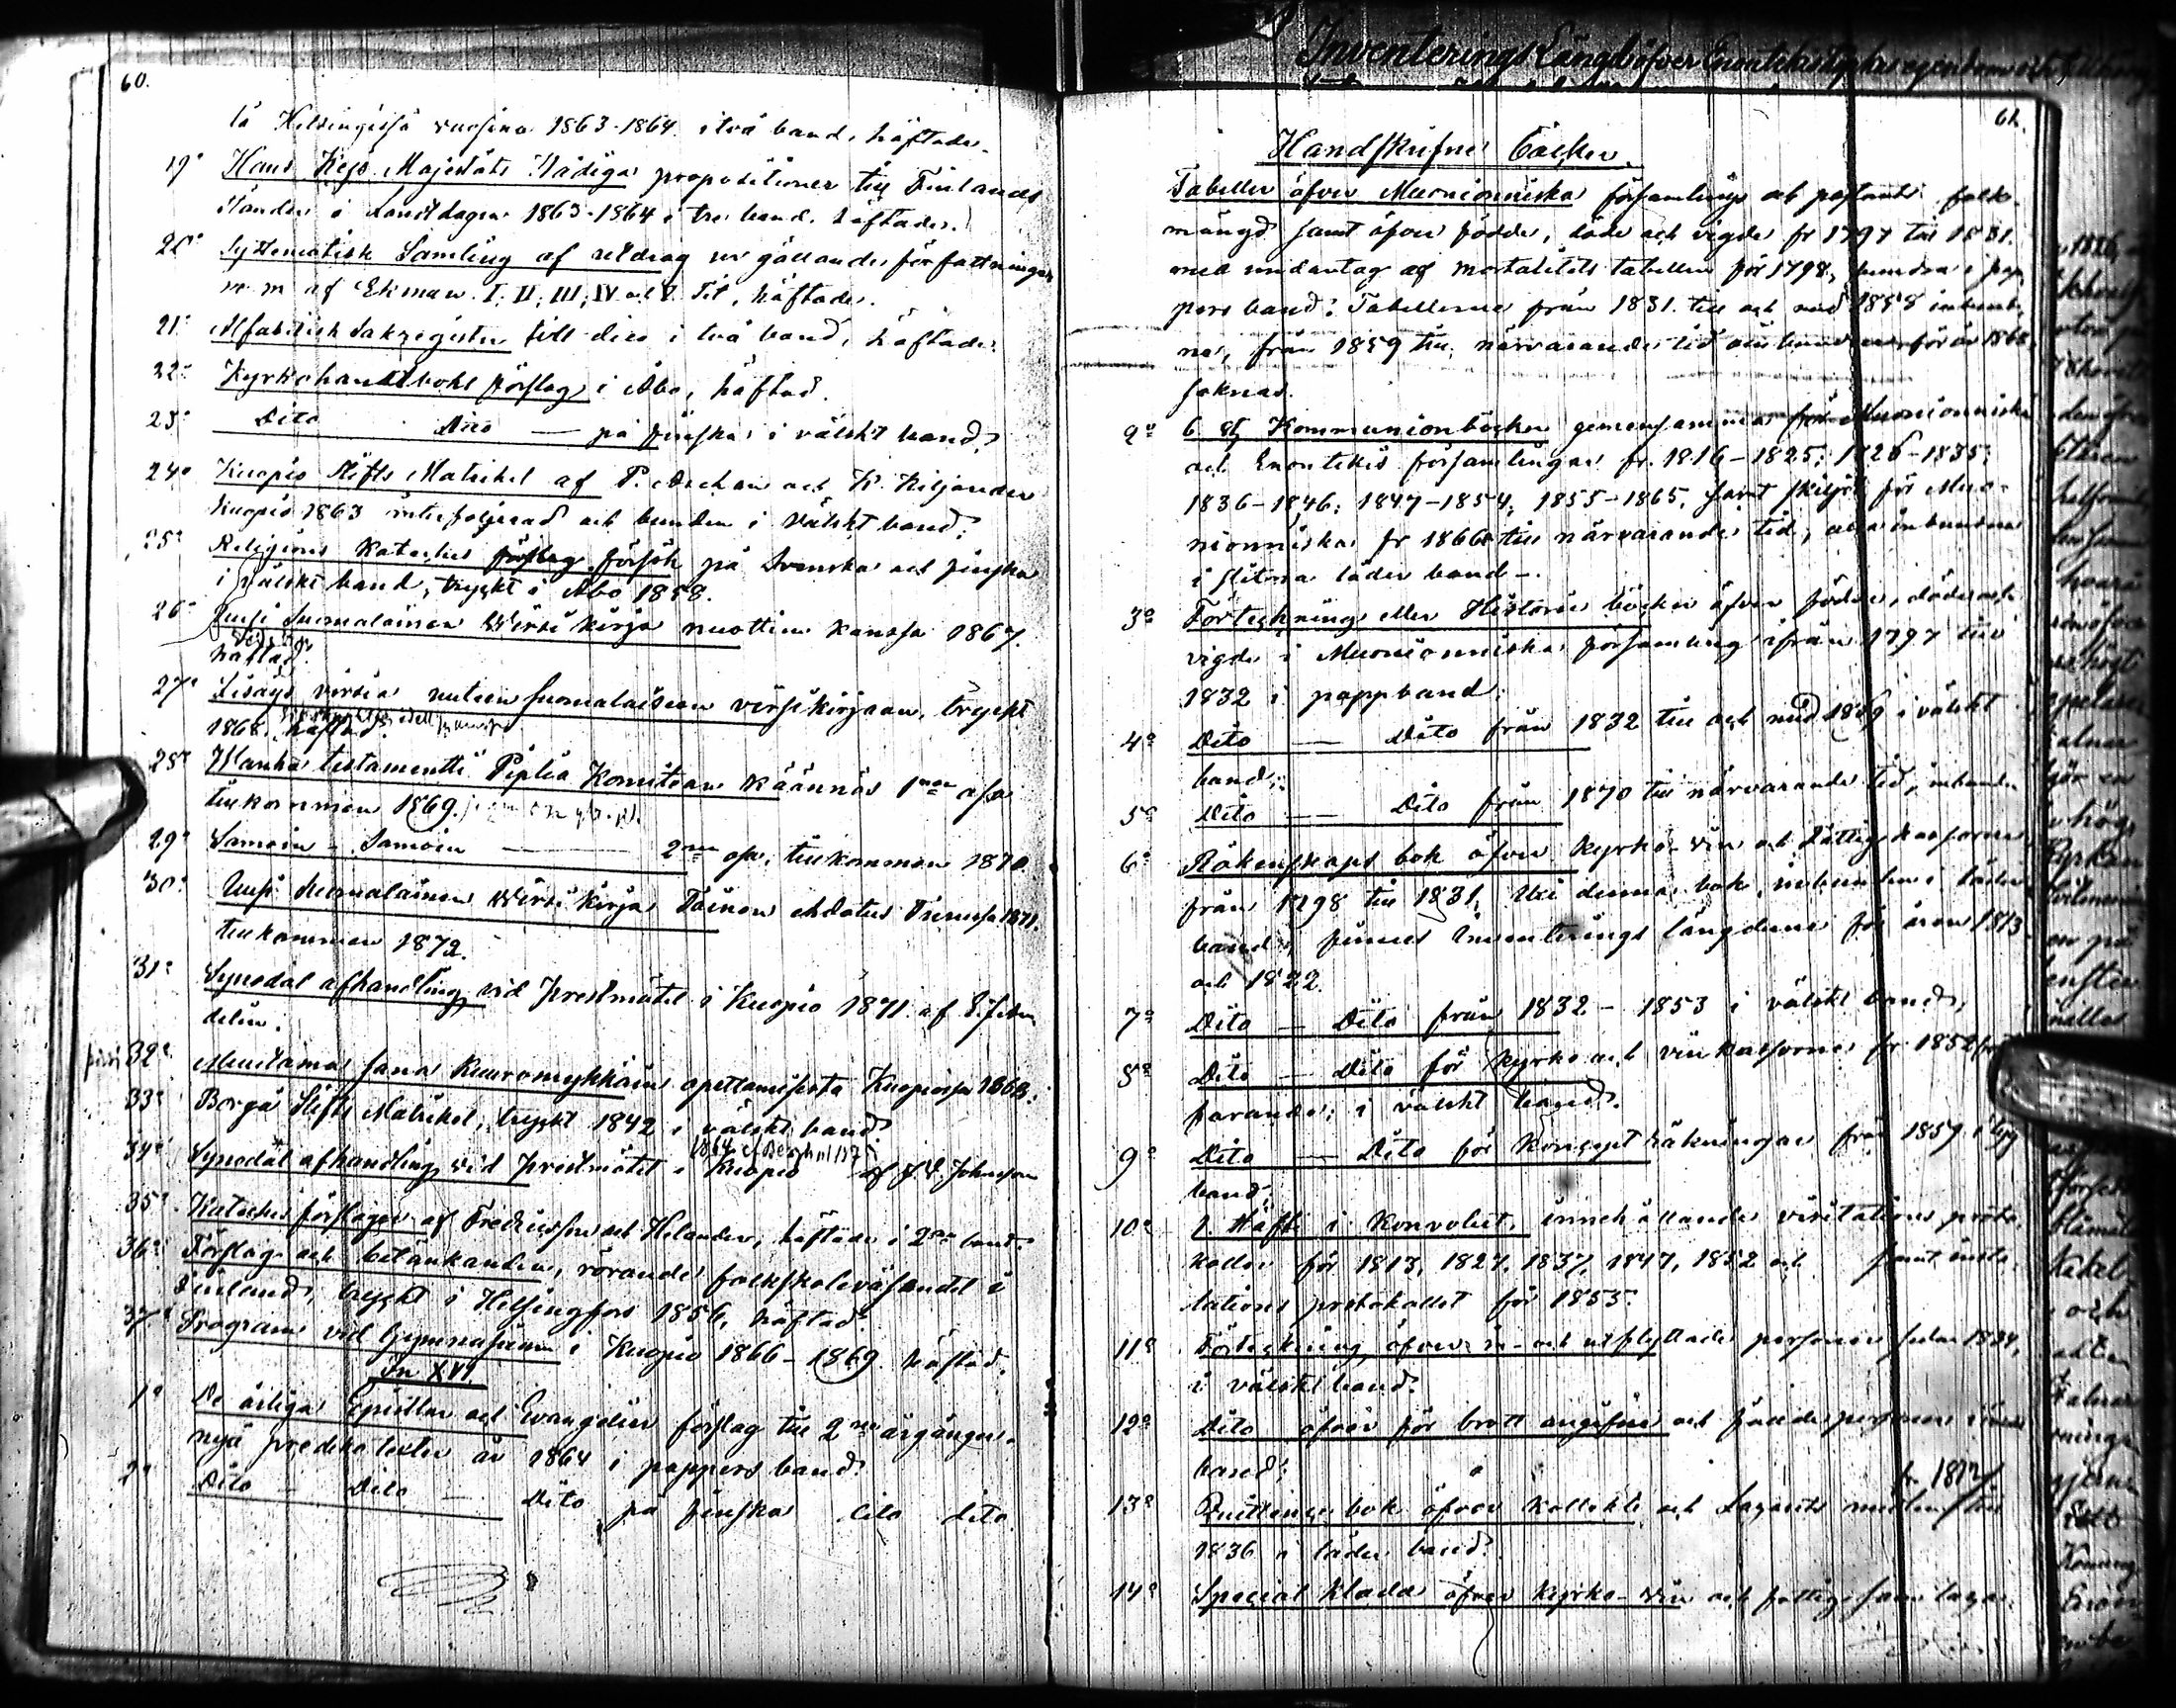 60.
tä Helsingissä vuosina 1863-1864 i två band, häftade.
19° Hans Kejs. Majestäts Nådiga propositioner till Finlands
Ständer i Landtdagen 1863-1864 i tre band. häftade.
20° Systematisk Samling af utdrag ur gällande författningar
m. m af Ekman. I, II, III, IV och V. Tit, häftade.
21° Alfabetisk Sakregister till dico i två band, häftade.
22° Kyrkohandboks förslag i Åbo, häftad.
23° Dito Dito — på finska i välskt band.
24° Kuopio Stifts Matrikel af P. Aschan och K. Kiljander
Kuopio 1863 interfolierad och bunden i Välskt band;
25° Religions Kateches förslag försök på Svenska och finska
i välskt band, tryckt i Åbo 1858.
26° Uusi Suomalainen Wirsi kirja nuottein kanssa 1867.
häftad.
27° Lisäys virsiä uuteen Suomalaiseen virsikirjaan, tryckt
1868. häftad.
28° Wanha testamentti Piplia Komitean käännös 1nen osa
tillkommen 1869.
29° Samoin – Samoin — 2nen osa, tillkommen 1870
30° Uusi Suomalainen Wirsi kirja Toinen ehdotus Turussa 1871.
tillkommen 1872.
31° Synodal afhandling vid Prestmötet i Kuopio 1871 af
32° Muutama sana Kuuromykkäin opettamisesta Kuopiossa 1863.
33° Borgå Stifts Matrikel, tryckt 1842 i välskt band
34° Synodal afhandling vid Prestmötet i Kuopio af Johnsson
35° Kateches förslager af Fredriksson och Helander, häftade i 2ne band.
36° Förslag och betänkanden, rörande folkskoleväsendet i
Finland, tryckt i Helsingfors 1856, häftad
37° Program vid Gymnasium i Kuopio 1866-1869 häftad.
In XVI
1° De årliga Epistlar och Evangelier förslag till 2ne årgångar
nya predikotexter år 1864 i pappers band.
2° Dito – Dito – Dito på finska dito dito
Inventerings Längd öfver Enontekis kyrkas egendom
61.
Handskrifne Böcker.
Tabeller öfver Muonionniska församlings och pastorats folk-
mängd samt öfver födde, döde och vigde fr 1797 till 1831.
med undantag af mortalitets tabellen för 1798, bundna i pap-
pers band; Tabellerna från 1831. till och med 1858 inbund-
na, från 1859 till närvarande tid för år 1868
saknas.
2° 6 st Kommunionböcker gemensamma för Muonionniska
och Enontekis församlingar fr. 1816-1825; 1826-1835;
1836-1846; 1847-1854, 1855-1865, samt skiljd för Muo-
nionniska fr 1866 till närvarande tid, alla inbundna
i slitna läder band –.
3° Förteckning eller Historie böcker öfver födde, döde och
vigde i Muonionniska församling ifrån 1797 till
1832 i pappband.
4° Dito — Dito från 1832 till och med 1869 i välskt
band;
5° Dito — Dito från 1870 till närvarande tid, inbunden
6° Räkenskaps bok öfver kyrko- vin och fattigkassorne
från 1798 till 1831. Uti denna bok, inbunden i läder
band, finnes Inventerings längderne för åren 1813
och 1822.
7° Dito — Dito från 1832 – 1853 i välskt band,
8° Dito — Dito för kyrko och vin kassorne fr 1852 fort-
farande; i välskt band.
9° Dito — Dito för Koncept räkningar från 1859 i
band;
10° 1 Häfte i Konvolut, innehållande visitations proto-
koller för 1813, 1827, 1837, 1847, 1852 och samt insti-
tutions protokollet för 1853.
11° Förteckning öfver in- och utflyttade personer sedan 1834,
i välskt band.
12° Dito öfver för brott angifne och fällde personer
band;
13° Quittence bok öfver Kollekt och Lazaretts medlen fr. 1812 till
1836 i läder band.
14° Special kladd öfver kyrko- vin och fattig